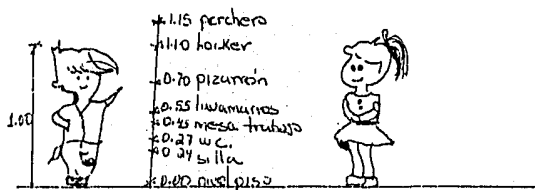 1.15 perchero
1.10 locker
0.70 pizarrón
0.55 lavamanos
0.45 mesa trabajo
0.27 w.c.
0.24 silla
0.00 nivel piso
1.00